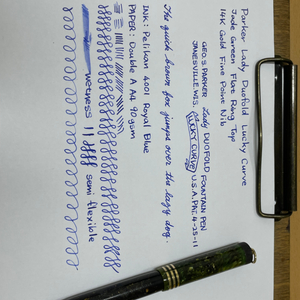 Parker Lady Duofold Lucky Curve
Jade Green Flat Ring Top
14K Gold Fine Point Nib
GEO.S.PARKER Lady DUOFOLD FOUNTAIN PEN
JANESVILLE.WIS. LUCKY CURVE U.S.A. PAT. 4-25-11
The quick brown fox jumps over the lazy dog.
INK: Pelikan 4001 Royal Blue
PAPER: Double A A4 90gsm
wetness
semi flexible